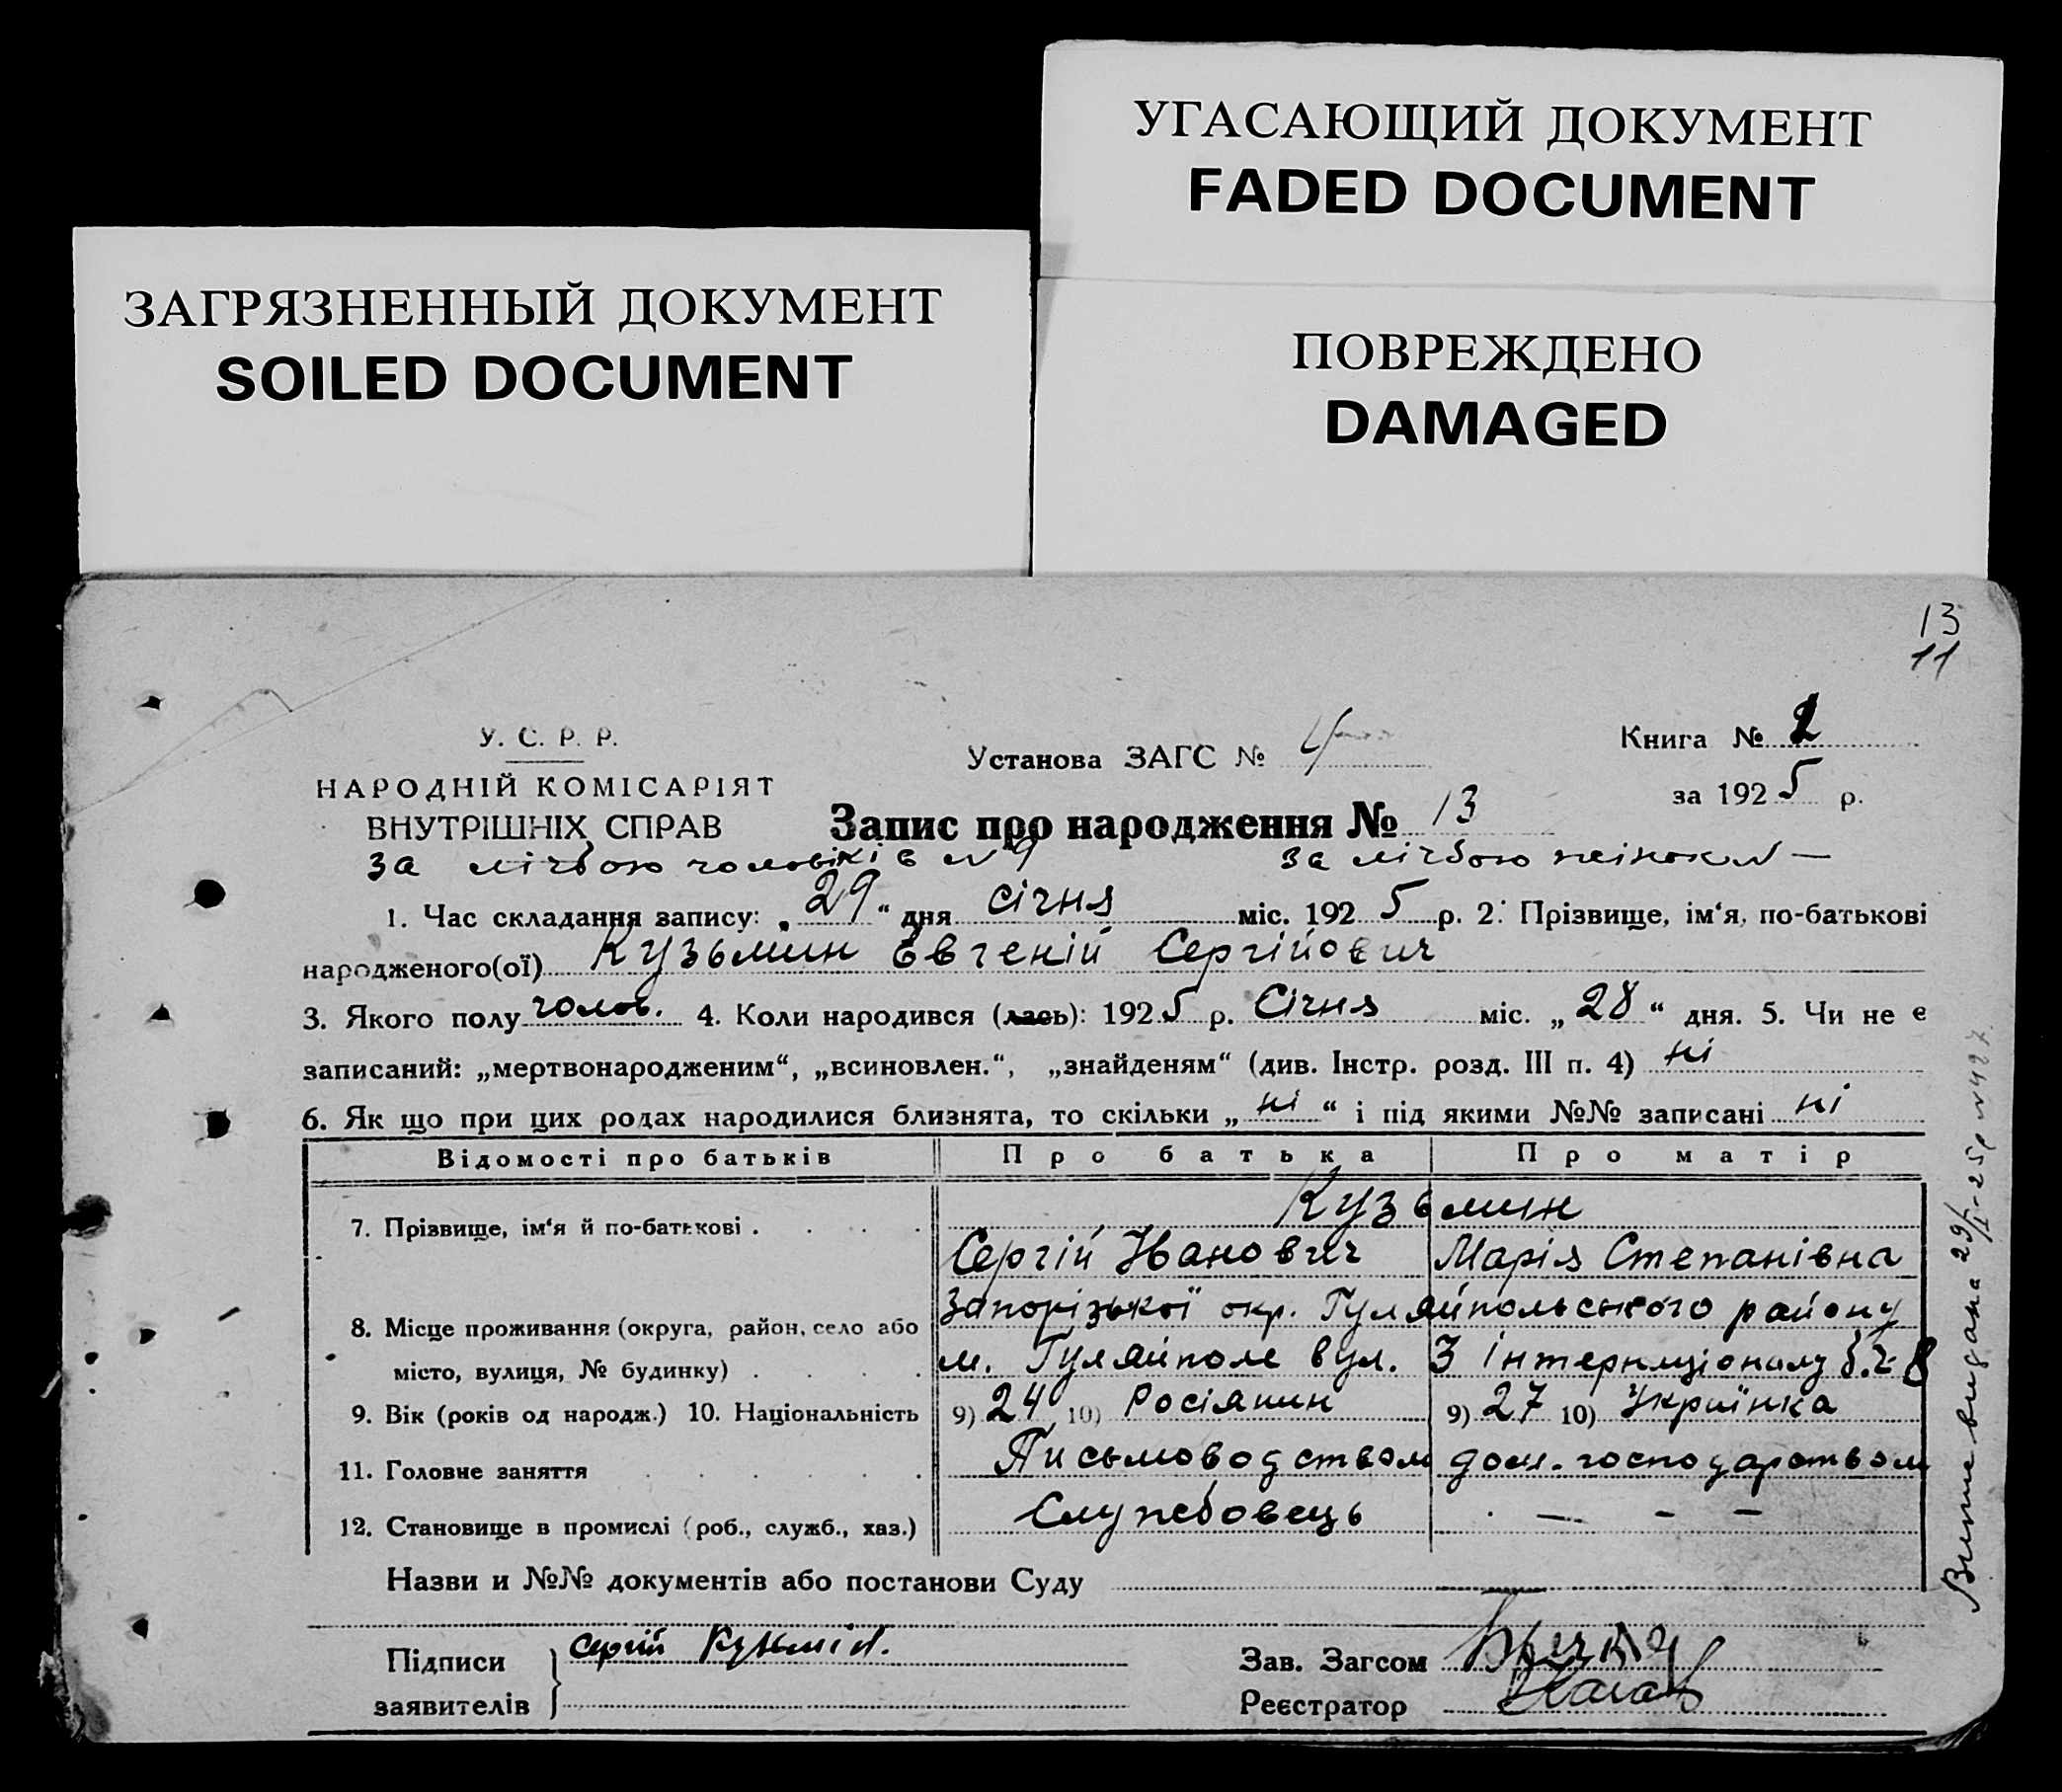 УГАСАЮЩИЙ ДОКУМЕНТ
FADED DOCUMENT
ЗАГРЯЗНЕННЫЙ ДОКУМЕНТ
SOILED DOCUMENT
ПОВРЕЖДЕНО
DAMAGED
13
11
У. С. Р. Р.
НАРОДНІЙ КОМІСАРІЯТ
ВНУТРІШНІХ СПРАВ
Установа ЗАГС №
Книга № 2
за 1925 р.
Запис про народження № 13
за лічбою чоловіків № 9 за лічбою жінок № —
1. Час складання запису: „29“ дня січня міс. 1925 р. 2. Прізвище, ім‘я, по-батькові
народженого(ої) Кузьмин Євгеній Сергійович
3. Якого полу чолов. 4. Коли народився (лась): 1925 р. Січня міс. „28“ дня. 5. Чи не є
записаний: „мертвонародженим“, „всиновлен.“, „знайденям“ (див. Інстр. розд. III п. 4) ні
6. Як що при цих родах народилися близнята, то скільки „ні“ і під якими №№ записані ні
Відомості про батьків Про батька Про матір
Кузьмин
7. Прізвище, ім‘я й по-батькові . . . . .
Сергій Иванович Марія Степанівна
Запорізької окр. Гуляйпольського району
8. Місце проживання (округа, район, село або
місто, вулиця, № будинку) . . . . м. Гуляйполе вул. 3 Інтернаціоналу б. ч 8
9. Вік (років од народж.) 10. Національність 9) 24 10) Росіянин 9) 27 10) Українка
11. Головне заняття . . . . . . Письмоводством дом. господарством
12. Становище в промислі (роб., служб., хаз.) Службовець — - —
Назви и №№ документів або постанови Суду —
Підписи Сергій Кузьмін.
заявителів
Зав. Загсом
Реєстратор
видана 29/I-25р № 427